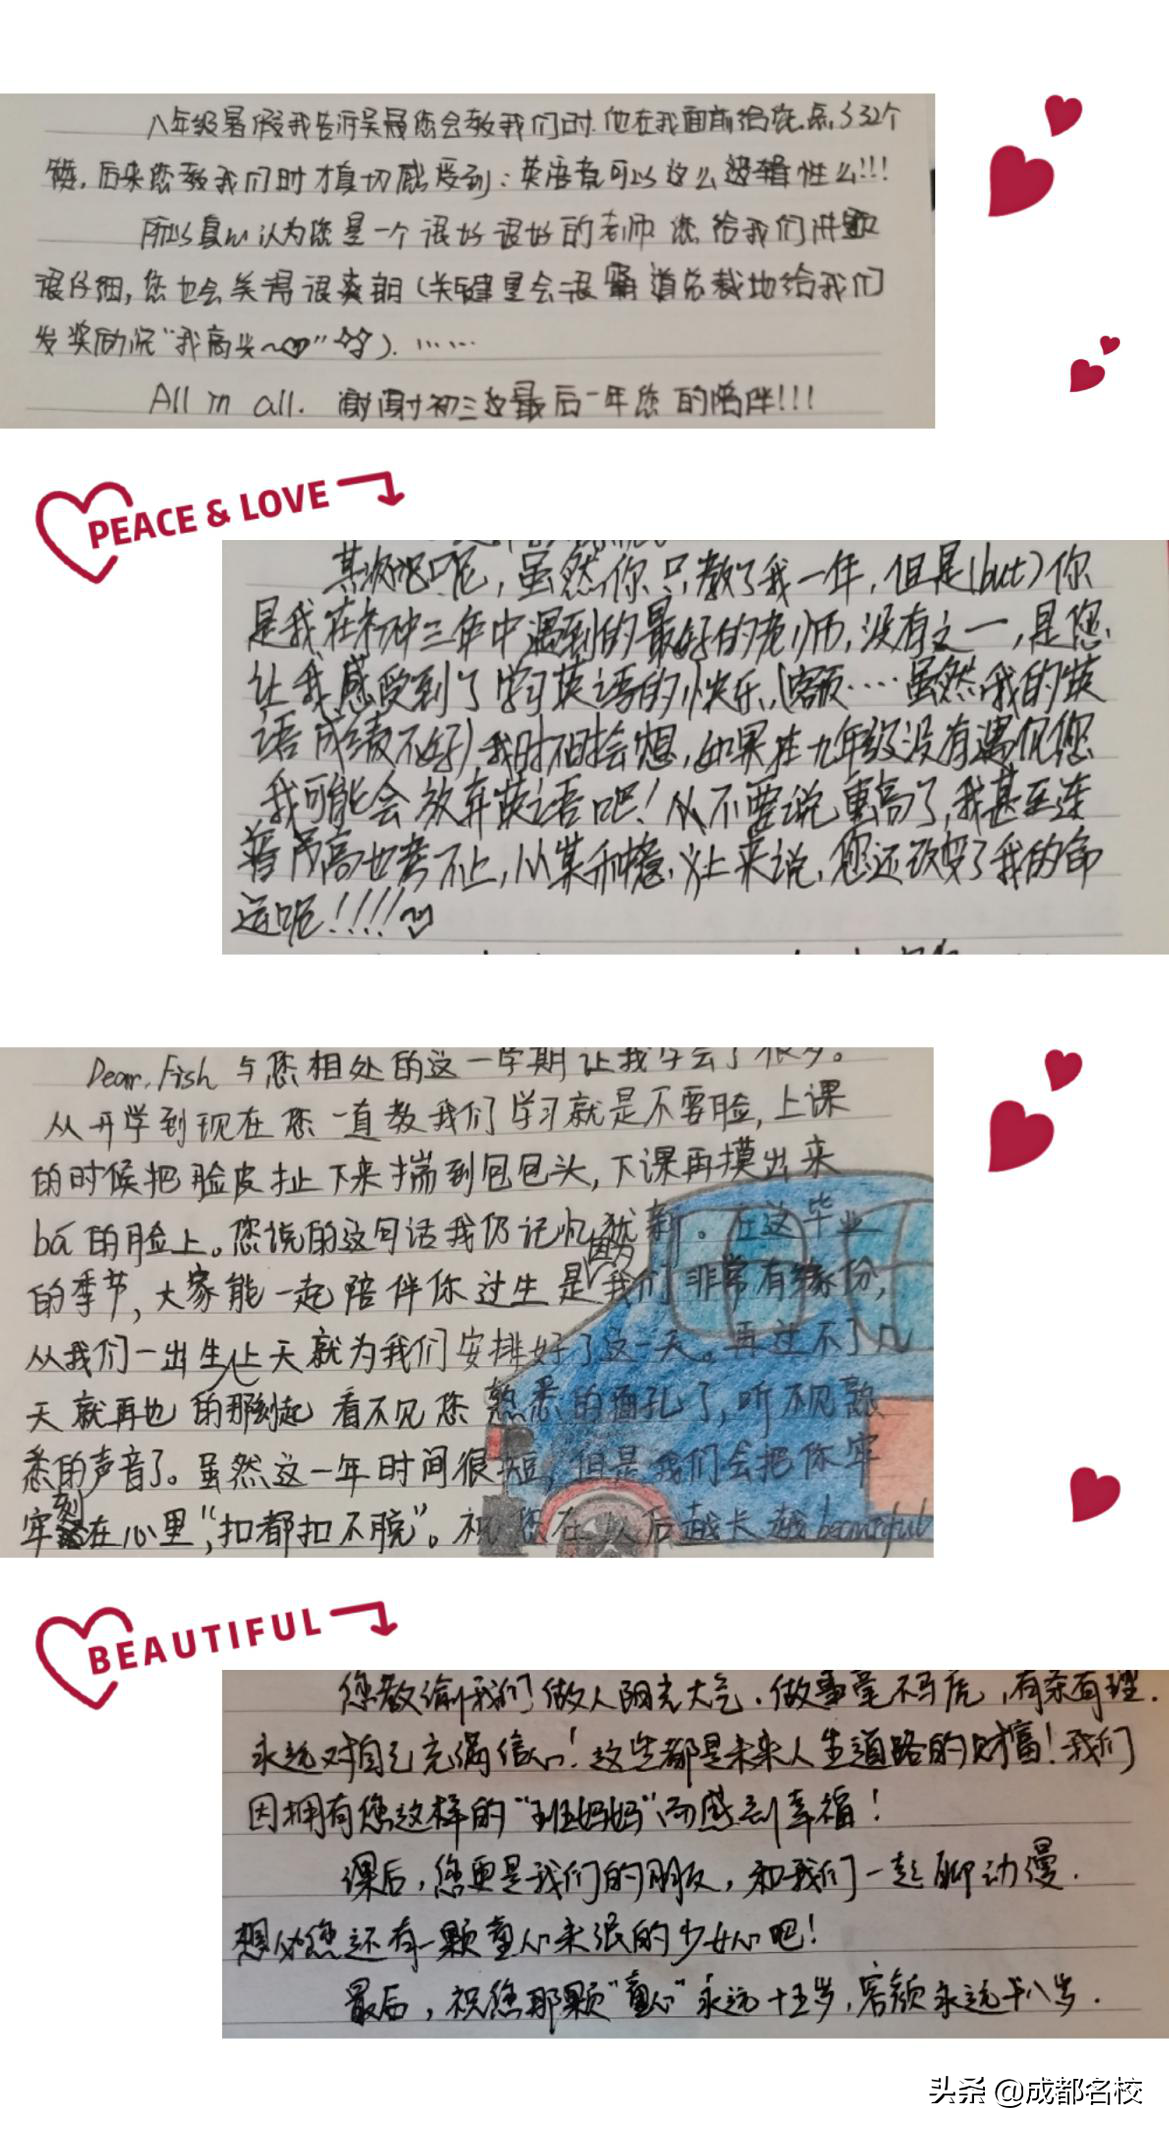 八年级暑假我告诉吴晨您会教我们时.他在我面前给您点了32个
赞,后来您教我们时才真切感受到:英语竟可以这么逻辑性么!!!
所以真心认为您是一个很好很好的老师 您给我们讲题
很仔细,您也会笑得很爽朗(关键是会很霸道总裁地给我们
发奖励说“我高兴~♡”☆☆). ……
All in all. 谢谢初三这最后一年您的陪伴!!!
PEACE & LOVE
其次呢,虽然你只教了我一年,但是(but)你
是我在初中三年中遇到的最好的老师,没有之一,是您
让我感受到了学习英语的快乐,(容颜……虽然我的英
语成绩不好)我时不时会想,如果在九年级没有遇见您
我可能会放弃英语吧!从不要说重高了,我甚至连
普高也考不上,从某种意义上来说,您还改变了我的命
运呢!!!!
Dear.Fish 与您相处的这一学期让我学会了很多。
从开学到现在您一直教我们学习就是不要脸,上课
的时候把脸皮扯下来揣到包包头,下课再摸出来
bā的脸上。您说的这句话我仍记忆犹新。在这毕业
的季节,大家能一起陪伴你过生是因为我们非常有缘份,
从我们一出生上天就为我们安排好了这一天。再过不了几
天就再也 的那刻起 看不见您熟悉的面孔了,听不见熟
悉的声音了。虽然这一年时间很短,但是我们会把你牢
牢刻在心里“,扣都扣不脱”。祝您在 后越长越beautiful
BEAUTIFUL
您教谕我们做人阳光大气.做事毫不马虎,有条有理.
永远对自己充满信心!这些都是未来人生道路的财富!我们
因拥有您这样的“班妈妈”而感到幸福!
课后,您更是我们的朋友,和我们一起聊动漫.
想必您还有一颗童心未泯的少女心吧!
最后,祝您那颗“童心”永远十五岁,容颜永远十八岁.
头条 @成都名校